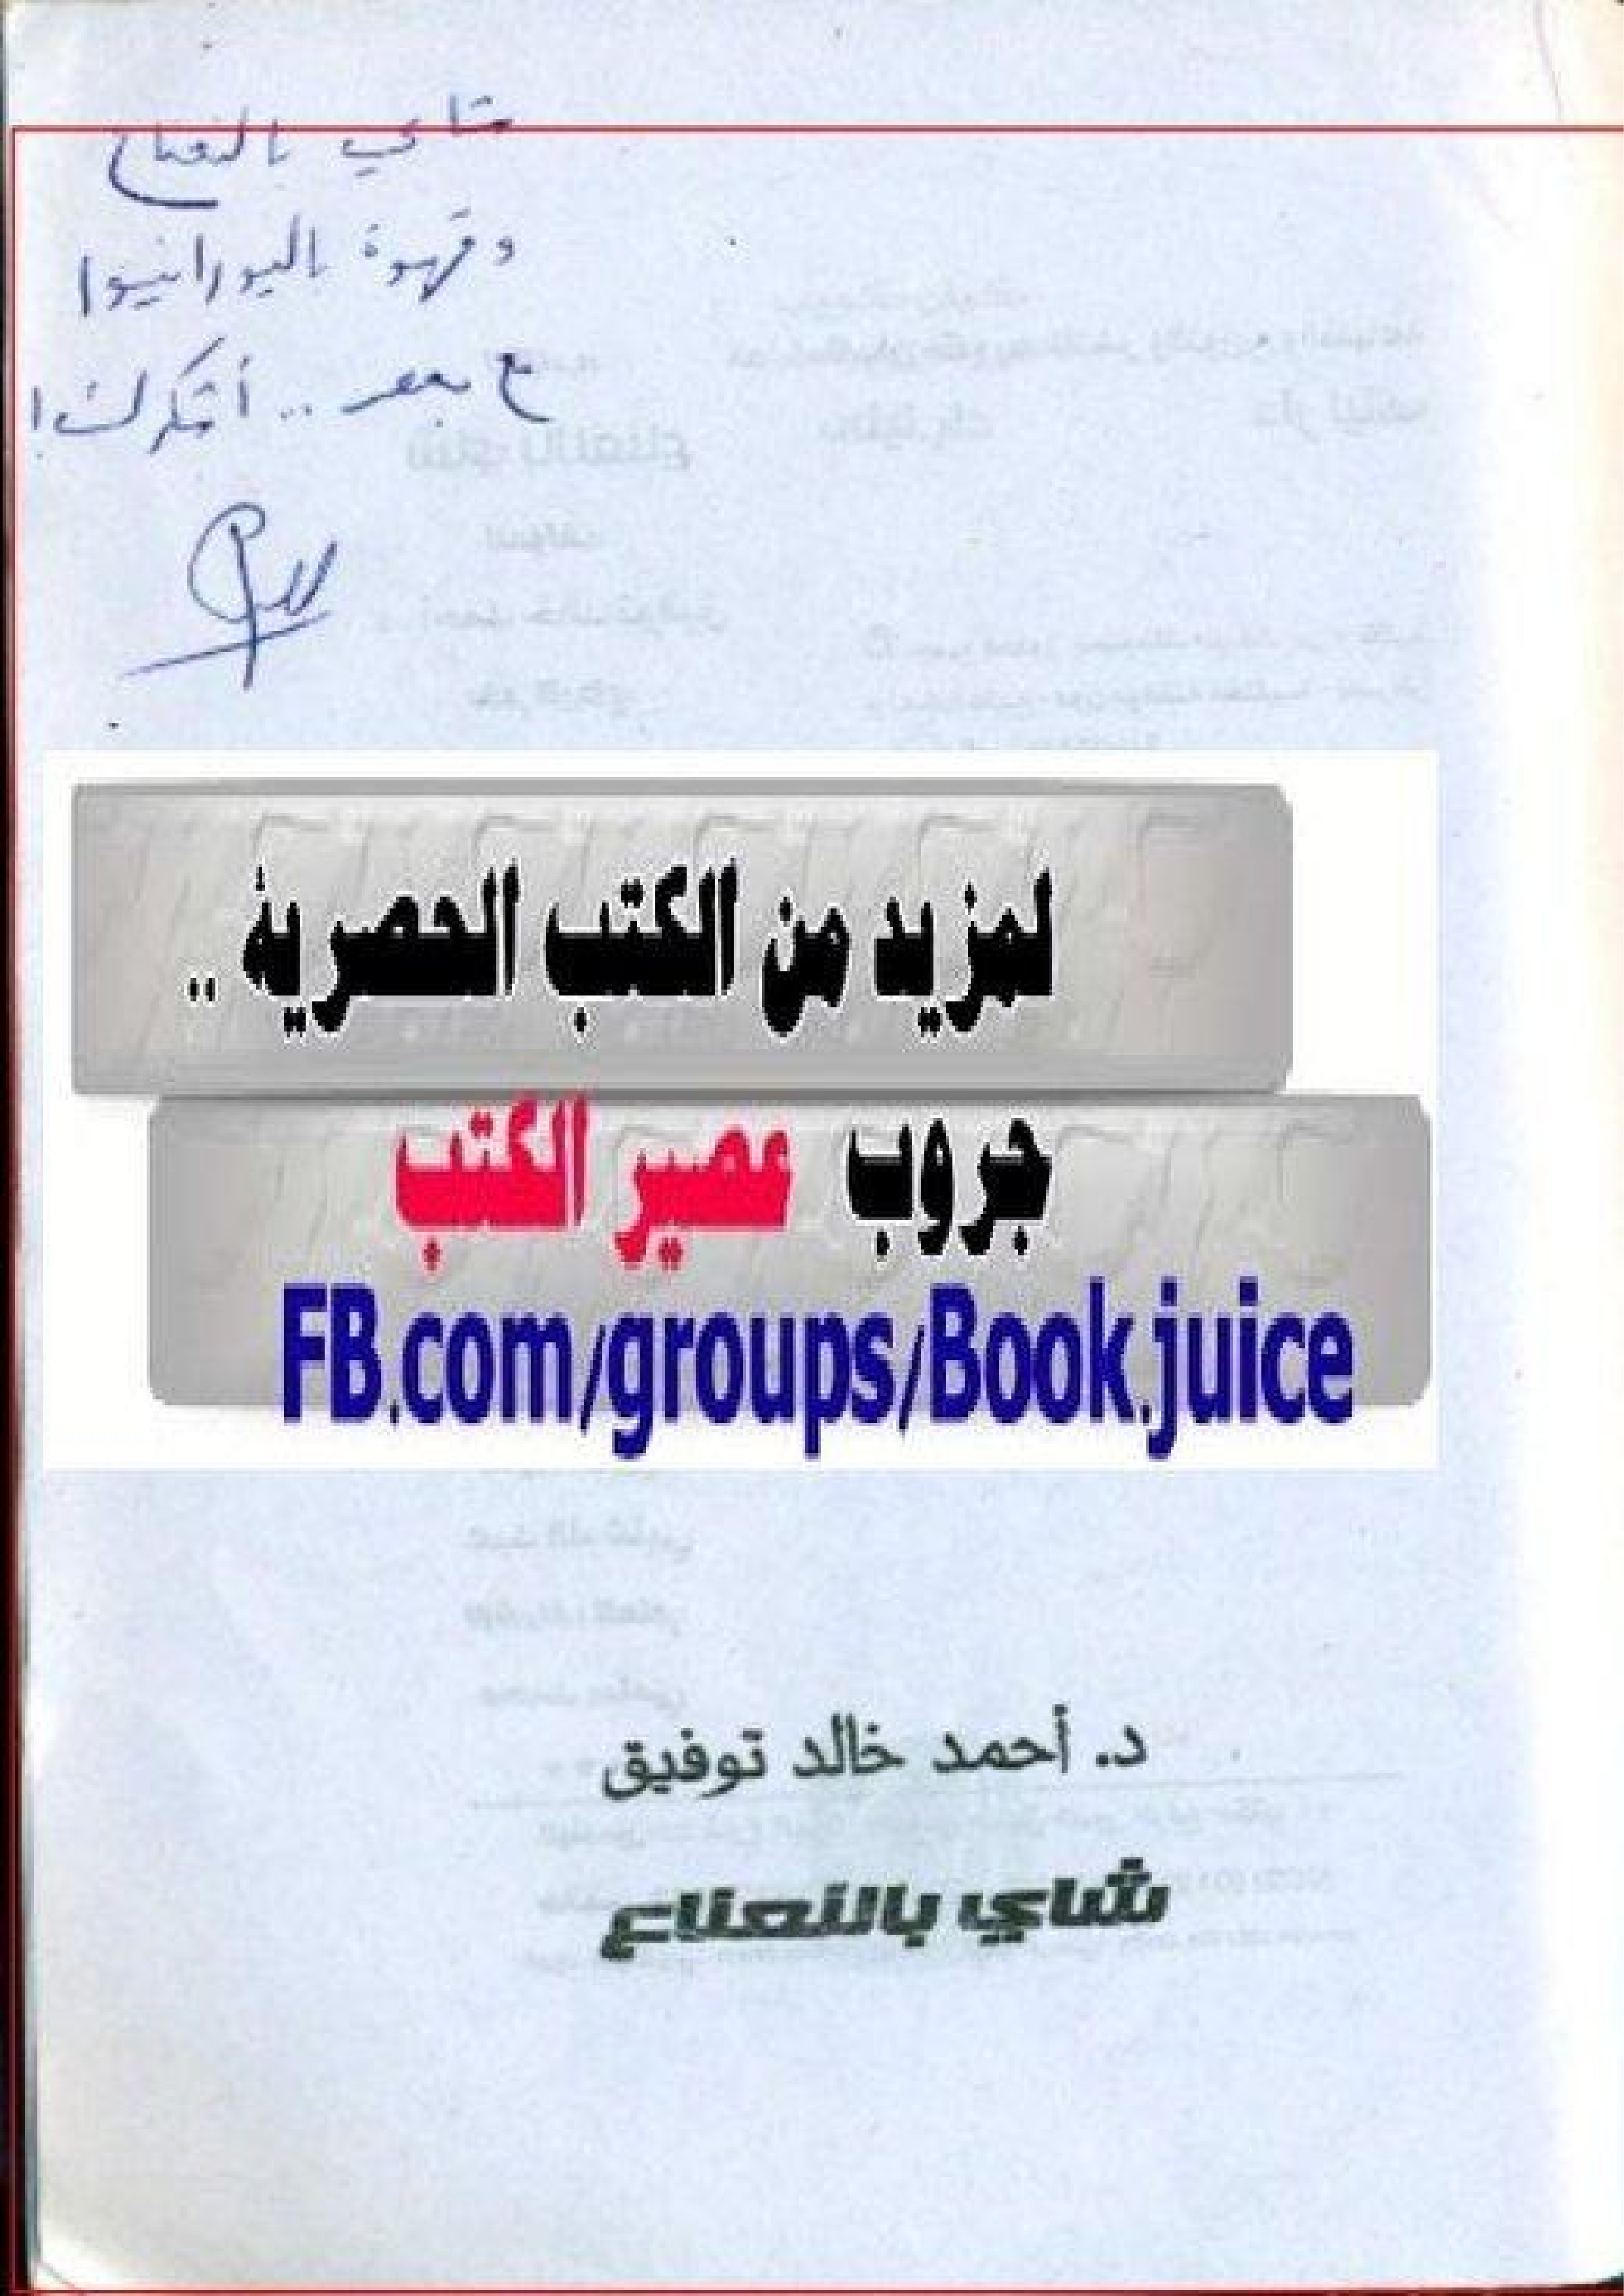 شاي بالنعناع
وقهوة باليورانيوا
مع بعض .. أشكرك!
لمزيد من الكتب الحصرية ..
جروب عصير الكتب
FB.com/groups/Book.juice
د. أحمد خالد توفيق
شاي بالنعناع